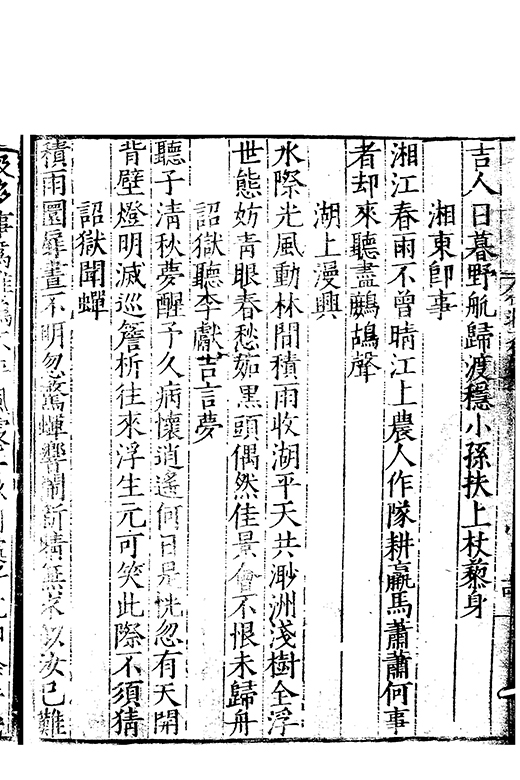 吉人日暮野航歸渡穩小孫扶上杖藜身
湘東卽事
湘江春雨不曾晴江上農人作隊耕羸馬蕭蕭何事
者却來聽盡鷓鴣聲
湖上漫興
水際光風動林間積雨收湖平天共渺洲淺樹全浮
世態妨靑眼春愁茹黑頭偶然佳景會不恨未歸舟
詔獄聽李獻吉言夢
聽子淸秋夢醒予久病懷逍遙何日是恍忽有天開
背壁燈明滅巡簷柝往來浮生元可笑此際不須猜
詔獄聞蟬
積雨圜扉晝不明忽驚蟬響鬧新晴無求似汝已難